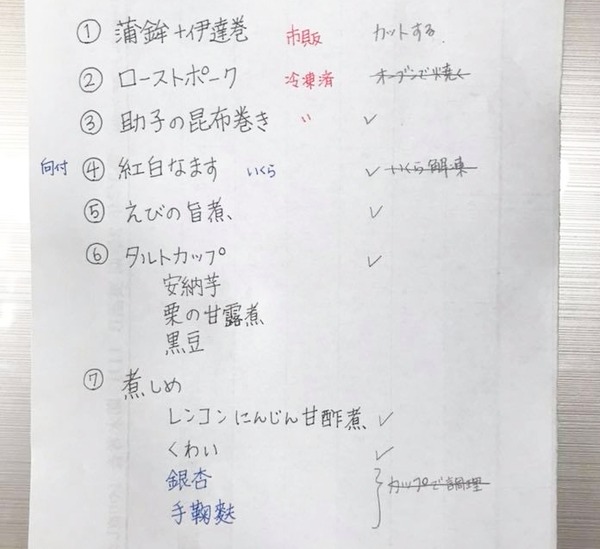 ① 蒲鉾+伊達巻 市販 カットする
② ローストポーク 冷凍済 オーブンで焼く
③ 助子の昆布巻き 〃 ✓
向付 ④ 紅白なます いくら ✓ いくら解凍
⑤ えびの旨煮、 ✓
⑥ タルトカップ ✓
安納芋
栗の甘露煮
黒豆
⑦ 煮しめ
レンコンにんじん甘酢煮 ✓
くわい ✓
銀杏
手鞠麩
カップで調理